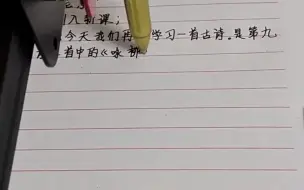 入新课：
今天我们再 学习一首古诗。是第九
首中的《咏柳